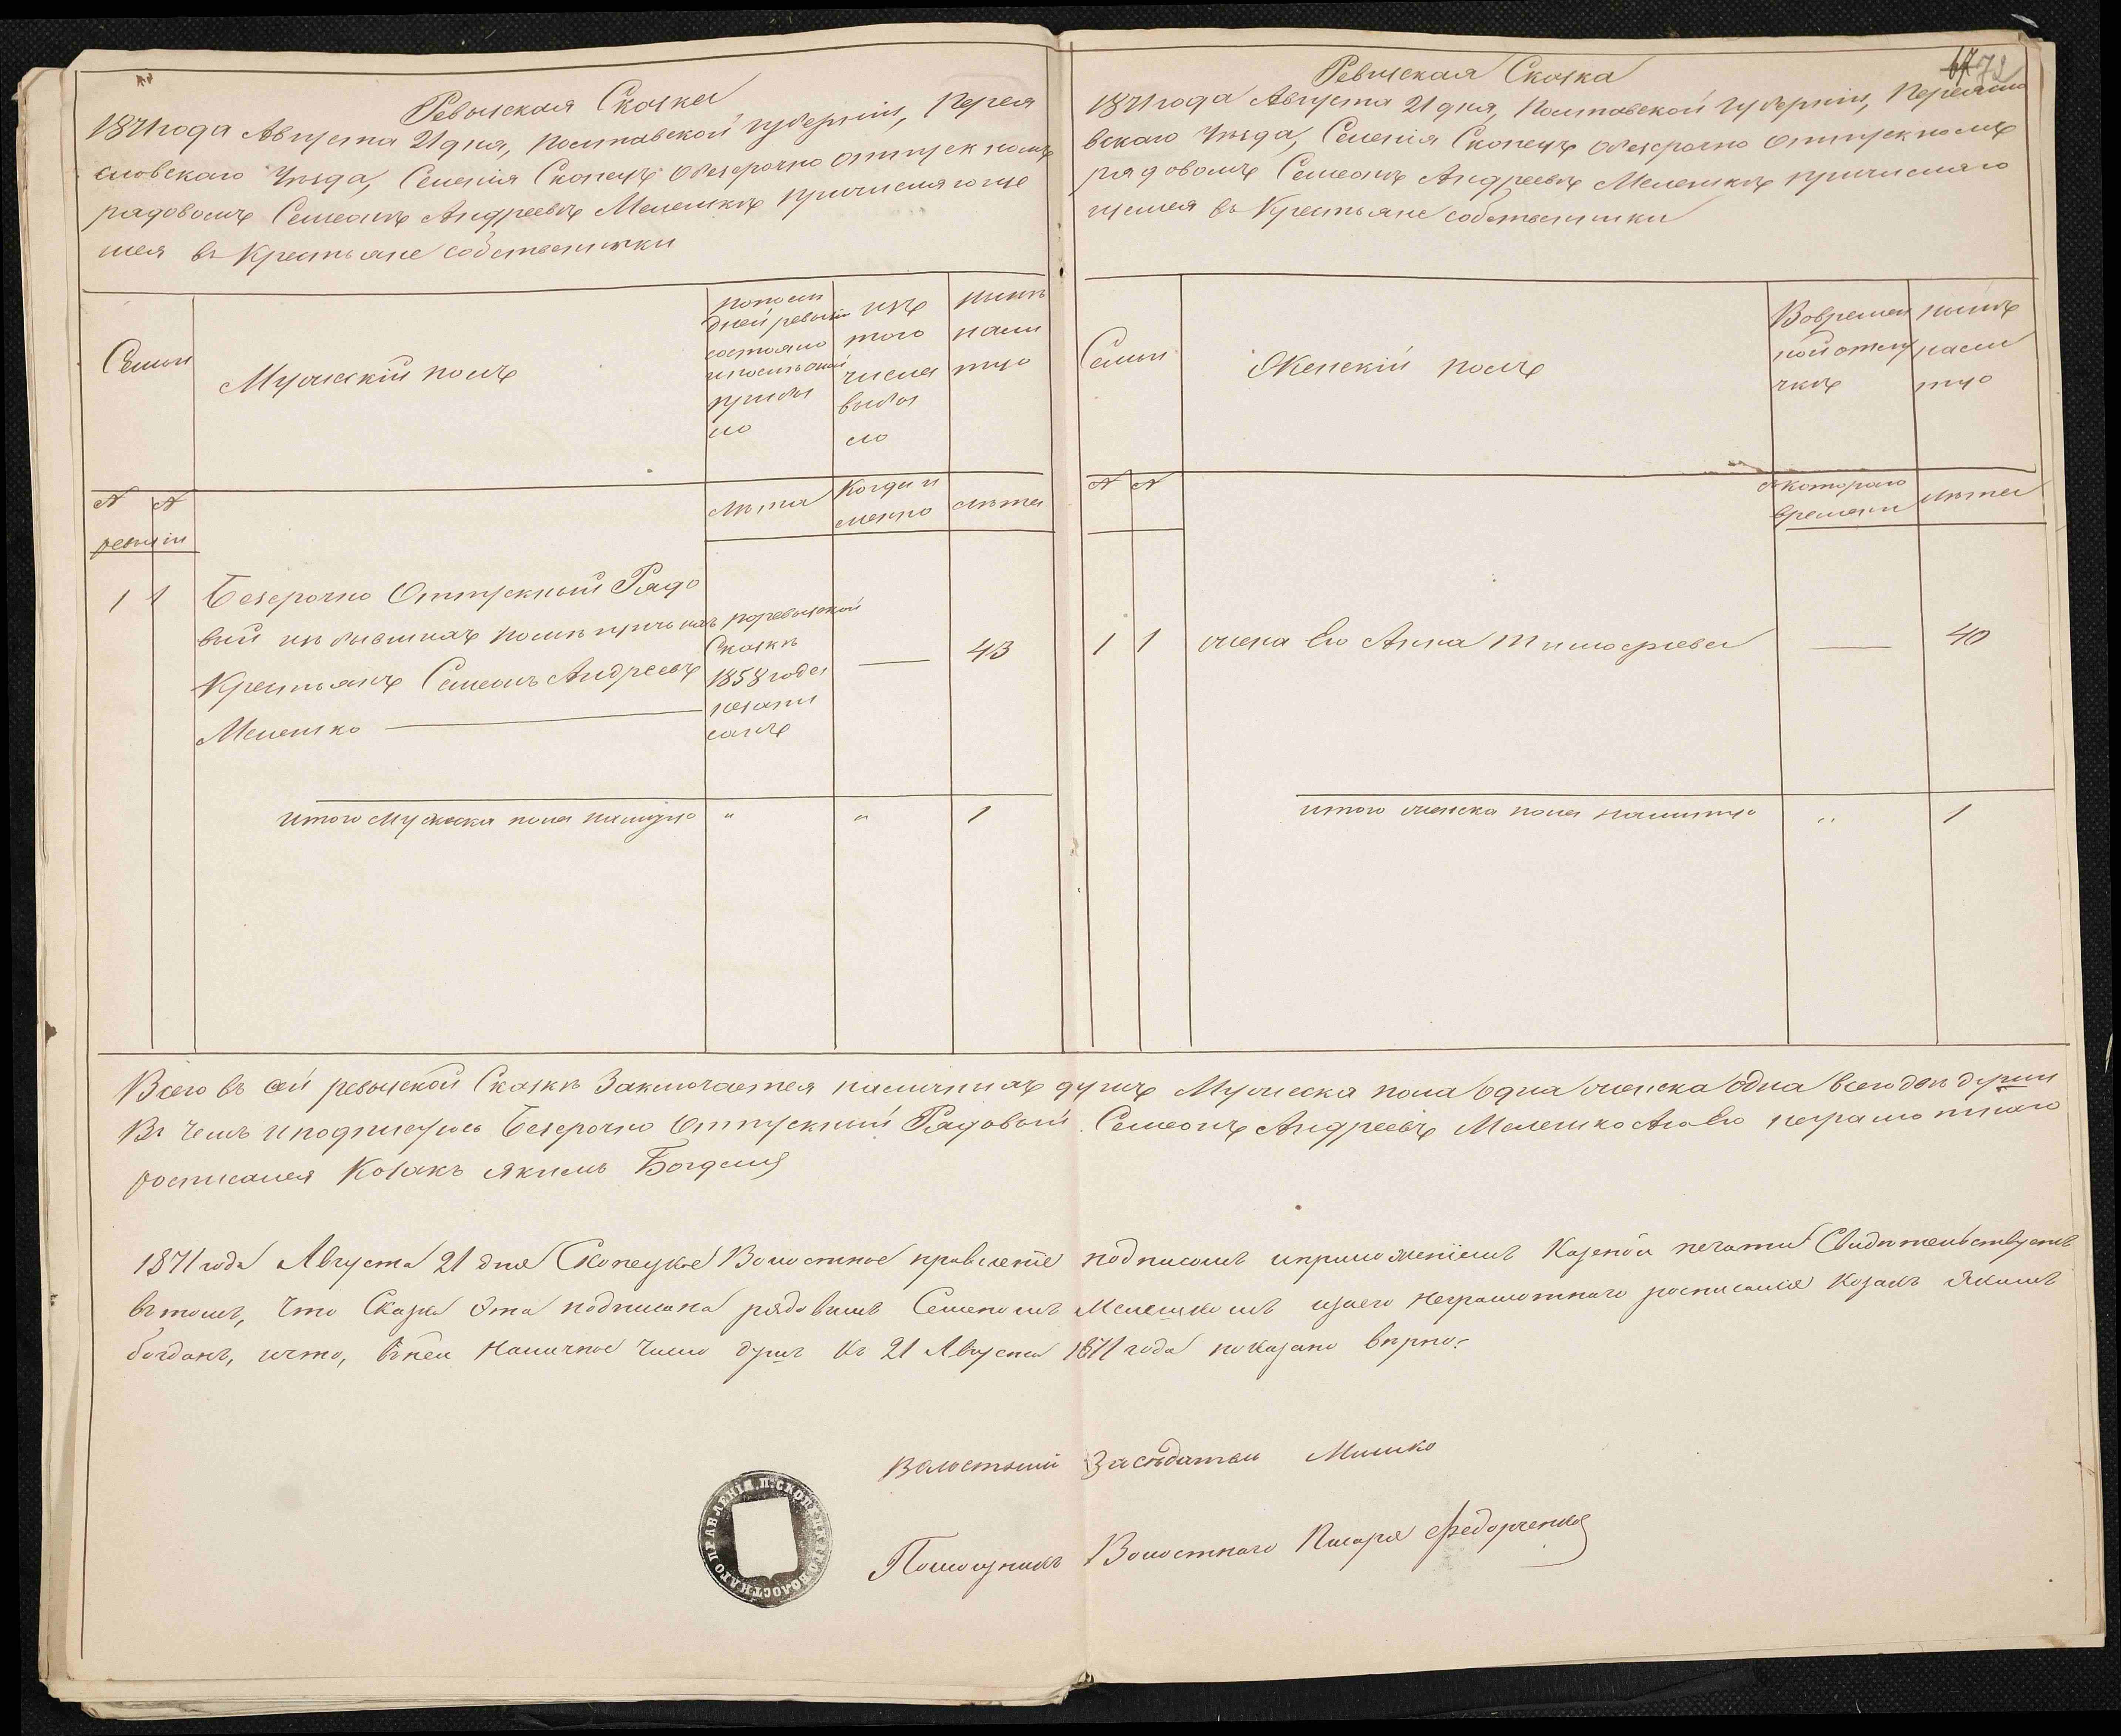 Ревизская Сказка
1871 года Августа 21 дня, Полтавской губерніи, Перея
словскаго Уѣзда, Селенія Скопецъ Обезсрочно отпускномъ
рядовомъ Семеонѣ Андреевѣ Мелешкѣ причисляюще
мся въ Крестьяне собственники
Семьи
Мужескій полъ
попослѣ
дней ревизіи
состояло
ипослѣ оной
прибы
ло
изъ
того
числа
выбы
ло
нынѣ
нали
цо
№ №
ревизіи
лѣта
Когда и
менно
лѣта
1 1
Безсрочно Отпускный Рядо
вый изъ бывшихъ помѣщичьихъ
Крестьянъ Семеонъ Андреевъ
Мелешко
поревизской
Сказкѣ
1858 года
незапи
санъ
43
итого мужеска пола налицо " " 1
67 72
Ревизская Сказка
1871 года Августа 21 дня, Полтавской губерніи, Переясло
вскаго Уѣзда, Селенія Скопецъ Обезсрочно Отпускномъ
рядовомъ Семеонѣ Андреевѣ Мелешкѣ причисляю
щемся въ Крестьяне собственники
Семьи
Женскій полъ
Вовремен
ной отлу
чкѣ
нынѣ
нали
цо
№ №
съкотораго
времени
лѣта
1 1 жена Его Анна Тимофѣева 40
итого женска пола налицо " 1
Всего въ сей ревизской Сказкѣ Заключается наличныхъ душъ Мужеска пола одна женска одна всего двѣ души
Въ чемъ иподписуюсь Безсрочно Отпускный Рядовый Семеонъ Андреевъ Мелешко Аза Его неграмотнаго
росписался Козакъ Якимъ Богданъ
1871 года Августа 21 дня Скопецкое Волостное правленіе подписомъ иприложеніемъ Казеной печати Свидѣтельствуетъ
втомъ, что Сказка Эта подписана рядовымъ Семеномъ Мелешкомъ изаего Неграмотнаго росписался Козакъ Якимъ
Богданъ, ичто, Вней Наличное Число душъ Къ 21 Августа 1871 года показано вѣрно.
Волостный Засѣдатель Мишко
Помощникъ Волостнаго Писаря Федорченко
П. СКОПЕЦКАГО ВОЛОСТНАГО ПРАВЛЕНІЯ